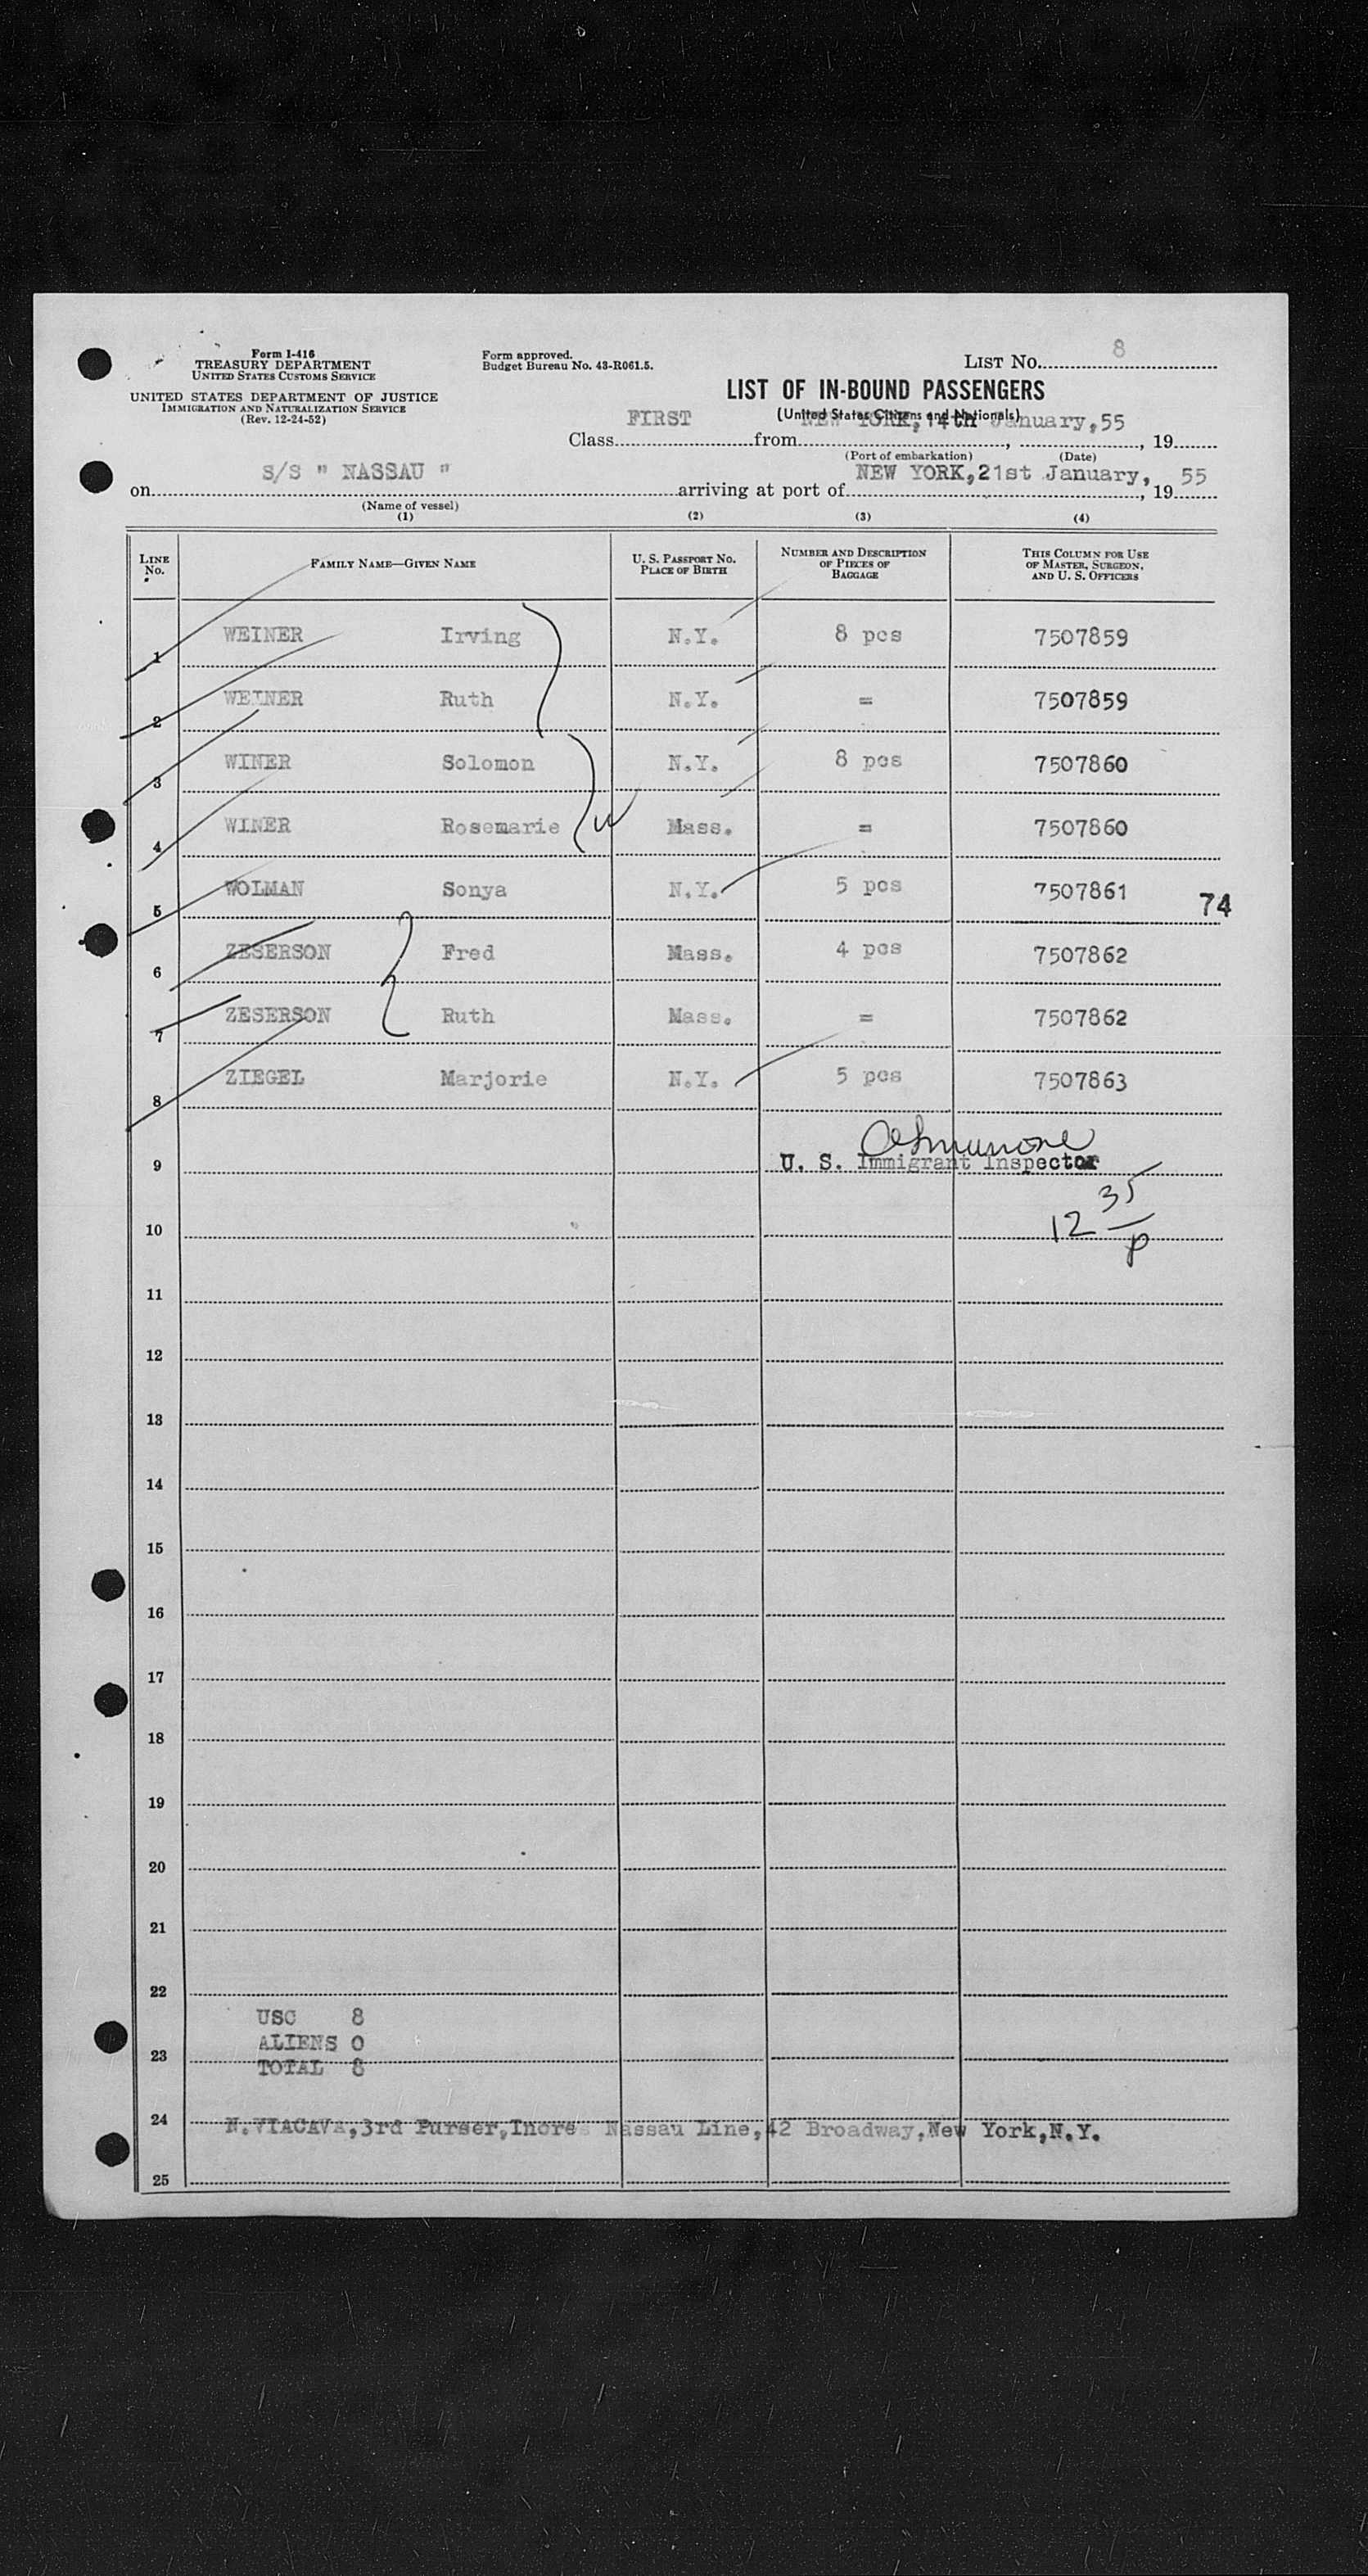 Form I-416
TREASURY DEPARTMENT
UNITED STATES CUSTOMS SERVICE
UNITED STATES DEPARTMENT OF JUSTICE
IMMIGRATION AND NATURALIZATION SERVICE
(Rev. 12-24-52)
Form approved.
Budget Bureau No. 43-R061.5.
LIST NO. 8
LIST OF IN-BOUND PASSENGERS
(United States Citizens and Nationals)
Class FIRST from NEW YORK, 14th January, 55, 19
(Port of embarkation) (Date)
on S/S " NASSAU " arriving at port of NEW YORK, 21st January, , 19 55
(Name of vessel)
(1) (2) (3) (4)
LINE No. FAMILY NAME—GIVEN NAME U. S. PASSPORT NO. PLACE OF BIRTH NUMBER AND DESCRIPTION OF PIECES OF BAGGAGE THIS COLUMN FOR USE OF MASTER, SURGEON, AND U. S. OFFICERS
1 WEINER Irving N.Y. 8 pcs 7507859
2 WEINER Ruth N.Y. = 7507859
3 WINER Solomon N.Y. 8 pcs 7507860
4 WINER Rosemarie Mass. = 7507860
5 WOLMAN Sonya N.Y. 5 pcs 7507861
74
6 ZESERSON Fred Mass. 4 pcs 7507862
7 ZESERSON Ruth Mass. = 7507862
8 ZIEGEL Marjorie N.Y. 5 pcs 7507863
9 U. S. Immigrant Inspector
10 12 35 p
11
12
13
14
15
16
17
18
19
20
21
22
USC 8
ALIENS 0
23
TOTAL 8
24
N.VIACAVA, 3rd Purser, Incres Nassau Line, 42 Broadway, New York, N.Y.
25